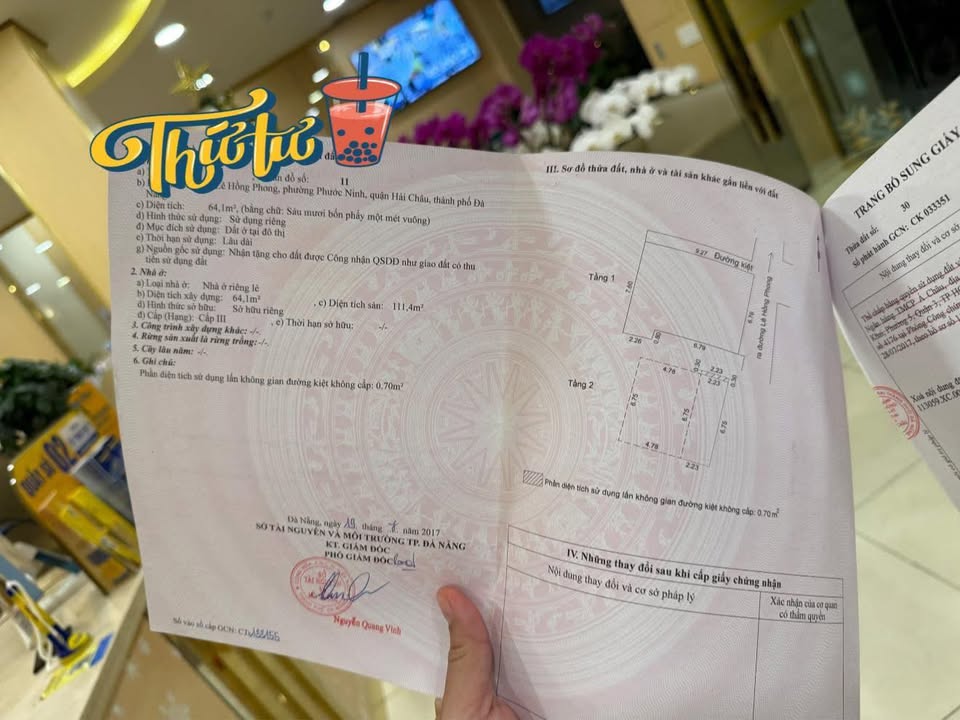 Thứ tư
ản đồ số: 11
Lê Hồng Phong, phường Phước Ninh, quận Hải Châu, thành phố Đà
Nẵng
c) Diện tích: 64,1m², (bằng chữ: Sáu mươi bốn phẩy một mét vuông)
d) Hình thức sử dụng: Sử dụng riêng
đ) Mục đích sử dụng: Đất ở tại đô thị
e) Thời hạn sử dụng: Lâu dài
g) Nguồn gốc sử dụng: Nhận tặng cho đất được Công nhận QSDĐ như giao đất có thu
tiền sử dụng đất
2. Nhà ở:
a) Loại nhà ở: Nhà ở riêng lẻ
b) Diện tích xây dựng: 64,1m² , c) Diện tích sàn: 111,4m²
d) Hình thức sở hữu: Sở hữu riêng
đ) Cấp (Hạng): Cấp III , e) Thời hạn sở hữu: -/-
3. Công trình xây dựng khác: -/-
4. Rừng sản xuất là rừng trồng: -/-
5. Cây lâu năm: -/-
6. Ghi chú:
Phần diện tích sử dụng lấn không gian đường kiệt không cấp: 0,70m²
Đà Nẵng, ngày 19 tháng 7 năm 2017
SỞ TÀI NGUYÊN VÀ MÔI TRƯỜNG TP. ĐÀ NẴNG
KT. GIÁM ĐỐC
PHÓ GIÁM ĐỐC
Nguyễn Quang Vinh
Số vào sổ cấp GCN: CT
III. Sơ đồ thửa đất, nhà ở và tài sản khác gắn liền với đất
Tầng 1
9.27 Đường kiệt
7.60
6.76
ra đường Lê Hồng Phong
2.26
0.80
6.79
Tầng 2
4.78
0.30
2.23
2.23
0.30
6.75
6.75
6.75
4.78
2.23
Phần diện tích sử dụng lấn không gian đường kiệt không cấp: 0.70m²
IV. Những thay đổi sau khi cấp giấy chứng nhận
Nội dung thay đổi và cơ sở pháp lý
Xác nhận của cơ quan
có thẩm quyền
TRANG BỔ SUNG GIẤY
Thửa đất số: 30
Số phát hành GCN: CK 033351
Nội dung thay đổi và cơ sở
Thế chấp bằng quyền sử dụng đất
Ngân hàng TMCP Á Châu, địa
Khai, Phường 5, Quận 3, TP Hồ
số 4176 tại Phòng Công chứng
28/07/2017, theo hồ sơ số
Xoá nội dung
113059.XC.00
QUẦY SỐ
02